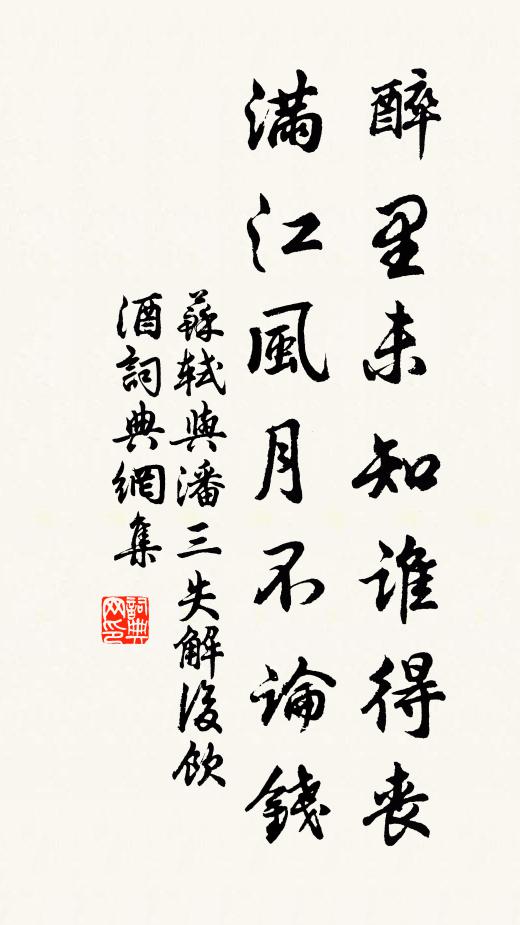 醉里未知誰得喪
滿江風月不論錢
蘇軾與潘三失解後飲
酒詞典網集
詞典
网印